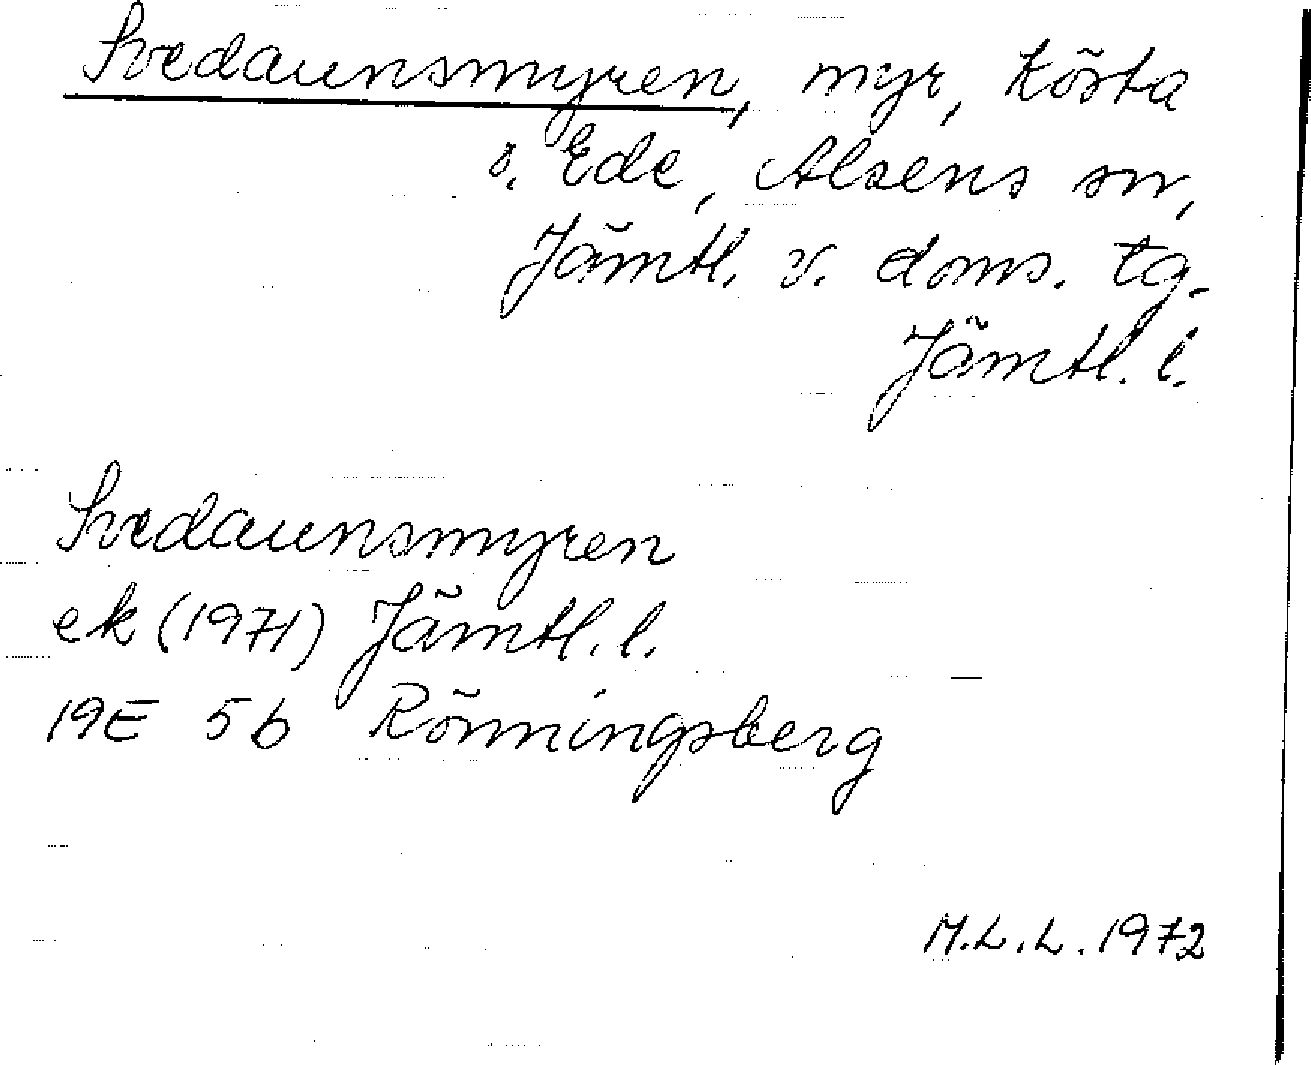 Svedaunsmyren, myr, Kösta
o. Ede, Alsens sn,
Jämtl. v. doms. tg.
Jämtl. l.
Svedaunsmyren
ek (1971) Jämtl. l.
19E 5b Rönningsberg
M.L.L. 1972